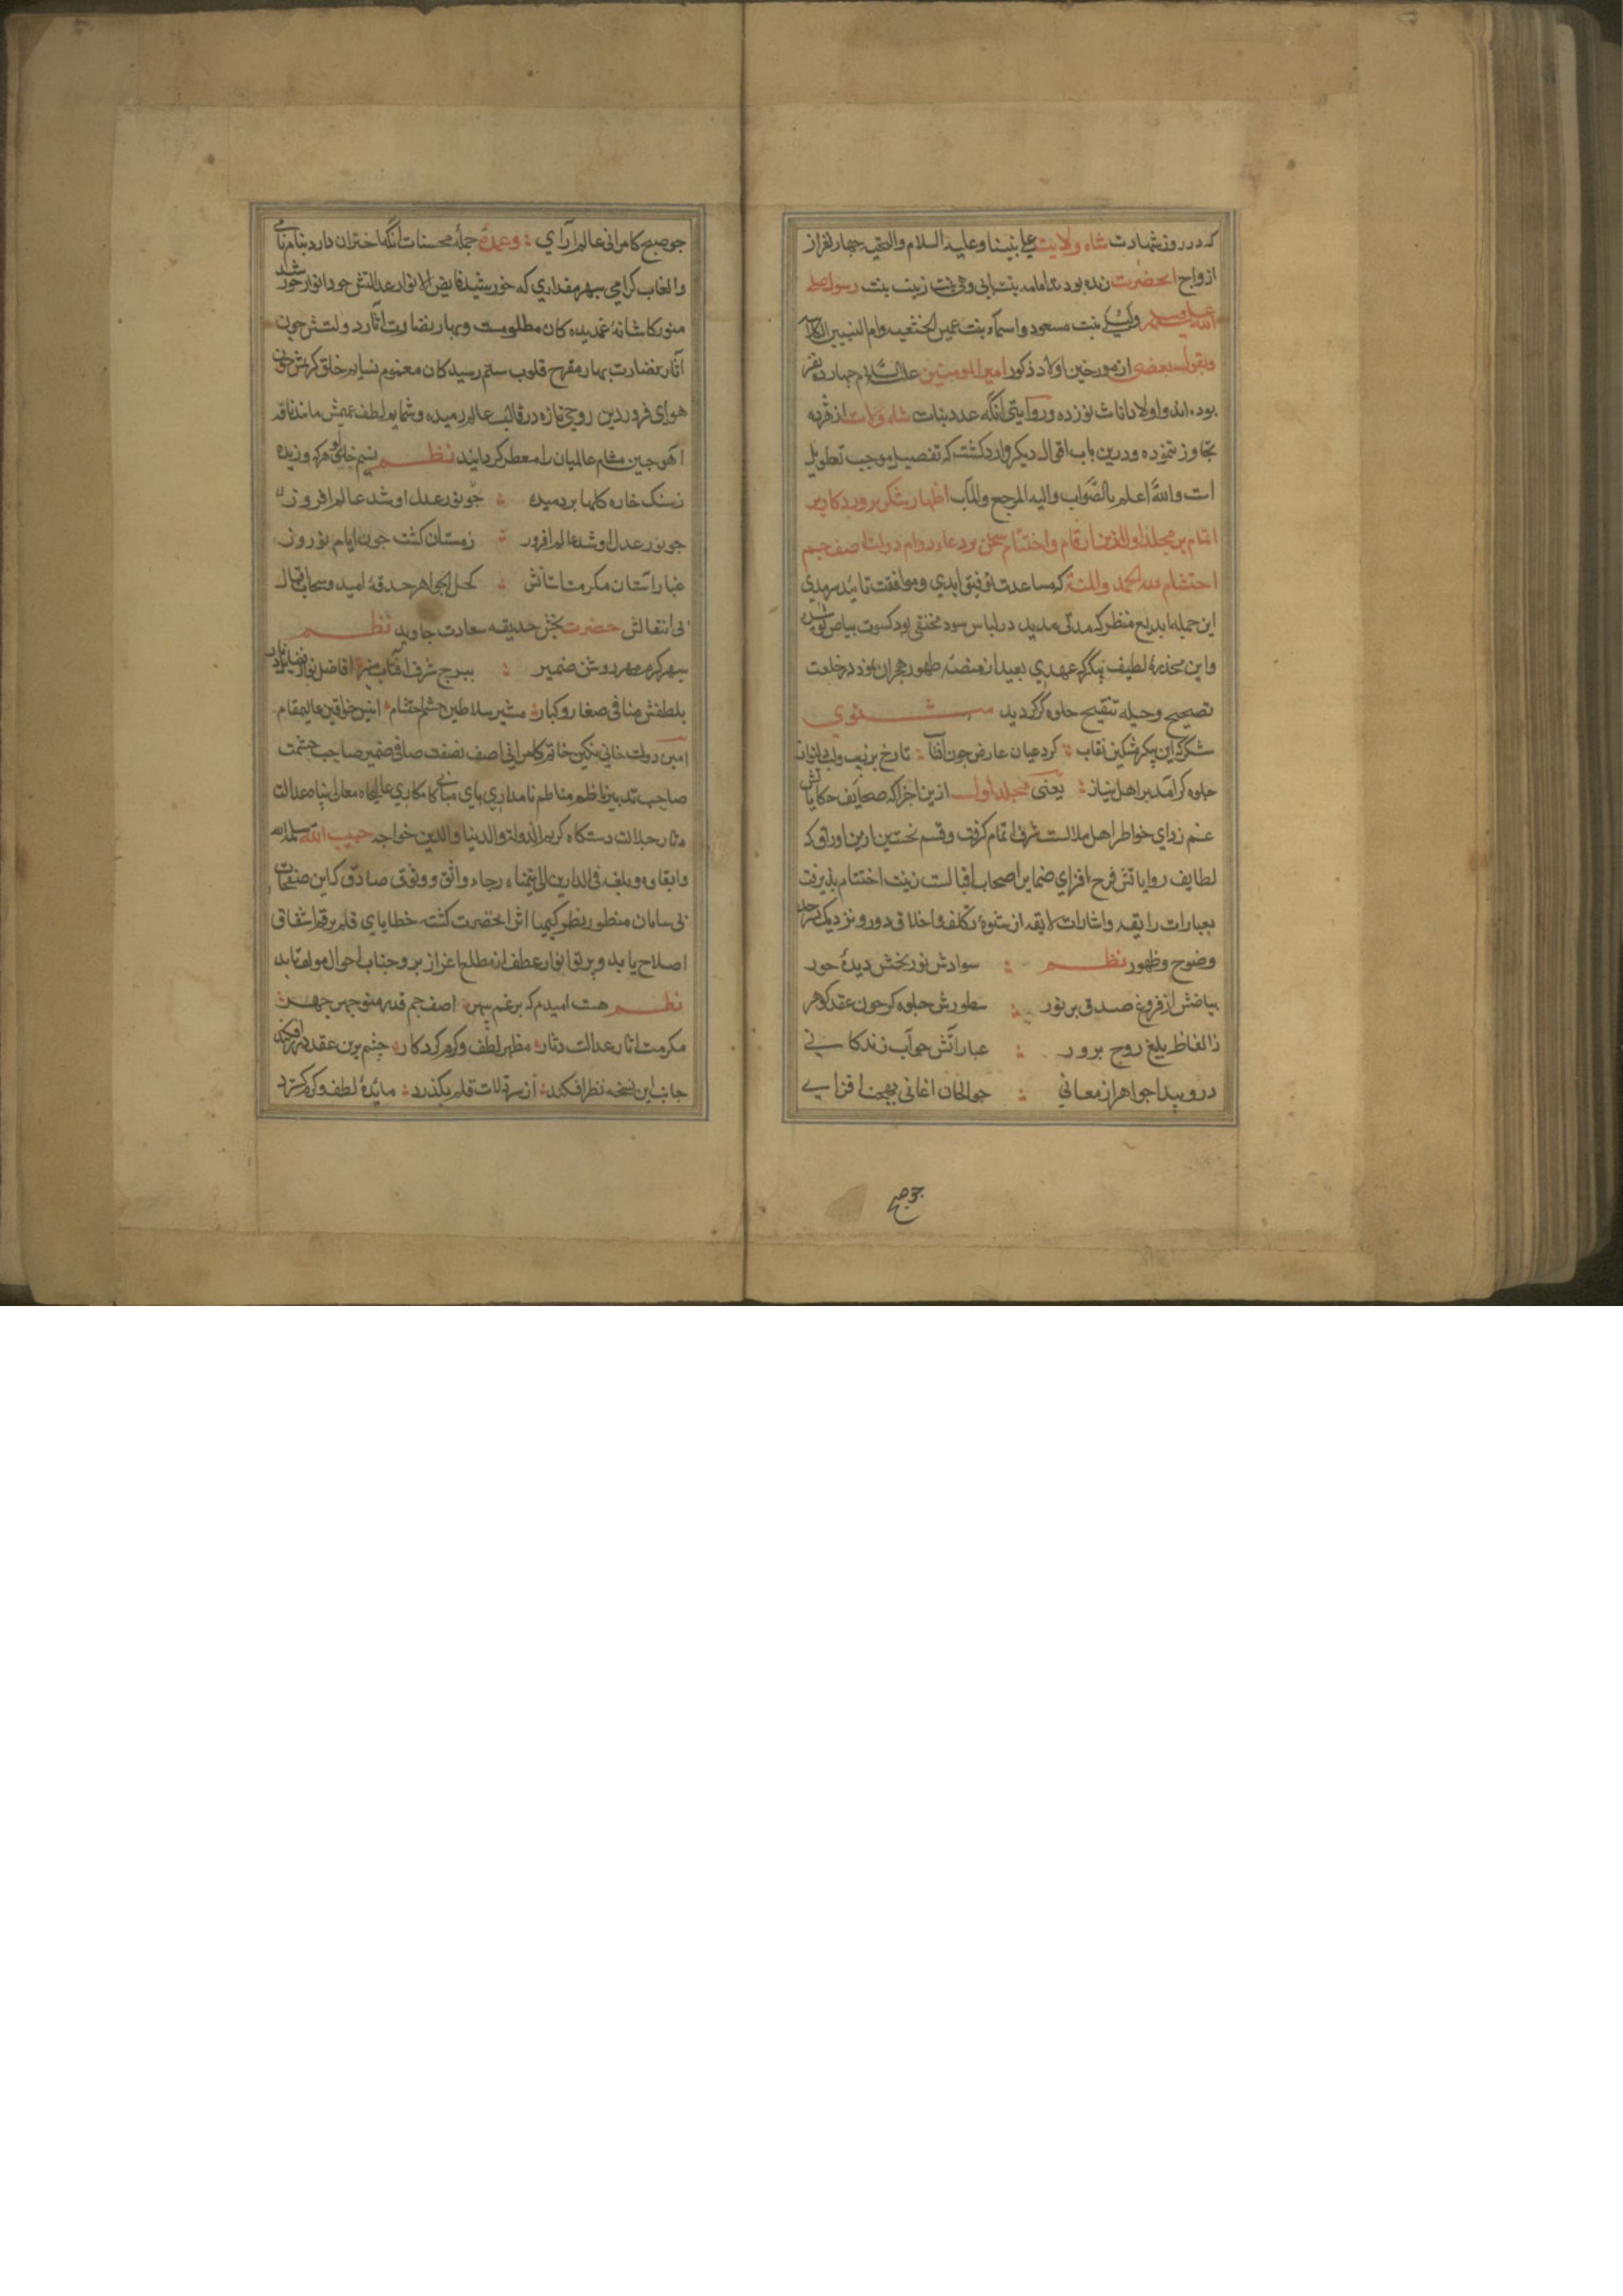 که در روز شهادت شاه ولایت علی نبینا و علیه السلام والتحیه چهار نفر از
ازواج انحضرت زنده بودند امامه بنت ابی وحی بنت زینب بنت رسول صلی
الله علیه وسلم ولیلی بنت مسعود و اسمآء بنت عمیس الخثعمیه وام البنیین الکلابیه
وبقول بعضی از مورخین اولاد ذکور امیر المومنین علیه السلام چهارده نفر
بوده اند و اولاد اناث نوزده و روایتی آنکه عدد بنات شاه ولایت از هژده
تجاوز ننموده و درین باب اقوال دیکر وارد کشته که تفصیل موجب تطویل
است والله اعلم بالصواب والیه المرجع والمآب اظهار شکر پرورد کار بر
اتمام برمجلد اول ازین ارقام واختتام سخن بر دعاء دوام دولت اصف جم
احتشام لله الحمد والمنة که مساعدت توفیق ابدی و موافقت تائید سرمدی
این جمیله بدیع منظر که مدتی مدید در لباس سود مختفی بود کسوت بیاض پوشیده
واین مخدرهٔ لطیف پیکر که عهدی بعید از منصهٔ ظهور هجران نمود در خلعت
تصحیح و حیله تنقیح جلوه کر کردید مثنوي
شکر که این پیکر مشکین نقاب کرد عیان عارض چون آفتاب تا رخ بزیب
جلوه کر آمد بر اهل نیاز یعنی مجلد اول ازین اجزا که صحایف حکایاتش
غم زدای خواطر اهل ملالست شرف اتمام کرفت و قسم نخستین ازین اوراق که
لطایف روایاتش فرح افزای ضمایر اصحاب اقبالست زینت اختتام پذیرفت
بعبارات رایقه واشارات لایقه از شیوهٔ تکلف واغلاق دور و نزدیک سرحد
وضوح وظهور نظم سوادش نور بخش دیدهٔ حور
بیاضش از فروغ صدق پر نور سطورش جلوه کر چون عقد کوهر
ز الفاظ بلیغ روح پرور عباراتش چو آب زندکانی
درو پیدا جواهر از معانی چو الحان اغانی بهجت افزای
چو صبح
چو صبح کامرانی عالم آرای وعمدهٔ جملهٔ محسنات آنکه اختران دارد بنام نامی
والقاب کرامی سپهر مقداری که خورشید فایض الانوار عدالتش چو انوار خورشید
منور کاشانهٔ غمدیده کان مظلومست وبهار نضارت آثار دولتش چون
آثار نضارت بهار مفرح قلوب ستم رسید کان مغموم نسایم خلق کریمش چون
هوای فروردین روحی تازه در قالب عالم دمیده و شمایم لطف عمیمش مانند نافه
آهوی چین مشام عالمیان را معطر کردانید نظم نسیم خلق او هر که وزیده
ز سنک خاره کلها بر دمیده چو نور عدل او شد عالم افروز
چو نور عدل او شد عالم افروز زمستان کشت چون ایام نوروز
غبار آستان مکرمت آشیانش کحل الجواهر حدقهٔ امید و سحاب اقبال
بی انتقالش حضرت بخش حدیقه سعادت جاوید نظم
سپهر کرم مهر روشن ضمیر ببرج شرف آفتاب منیر افاضل نواز
بلطفش صغار و کبار مشیر سلاطین جشم احتشام انیس خواقین عالیمقام
امین دولت خانی نکین خاتم کامرانی اصف نصفت صافی ضمیر صاحب حشمت
صاحب تدبیر ناظم مناظم نامداری بانی مبانی کامکاری عالیجاه معالی پناه عدالت
دثار جلالت دستکاه کریم الدولة والدنیا والدین خواجه حبیب الله سلمه الله
وابقاه و بلغه فی الدارین الی یتمناه رجاء واثق و وثوقی صادق که این صفحات
بی سامان منظور نظر کیمیا اثر انحضرت کشته خطایای قلم برقم اشفاق
اصلاح یابد و پرتو انوار عطف از مطلع اعزاز بر وجنات احوال مولف تابد
نظم هست امیدم که برغم سپهر اصف جم قدر منوچهر چهر
مکرمت آثار عدالت دثار مظهر لطف و کرم کردکار چشم برین عقد
جانب این نسخه نظر افکند از سر زلات قلم بکذرد مائدهٔ لطف و کرم کسترد